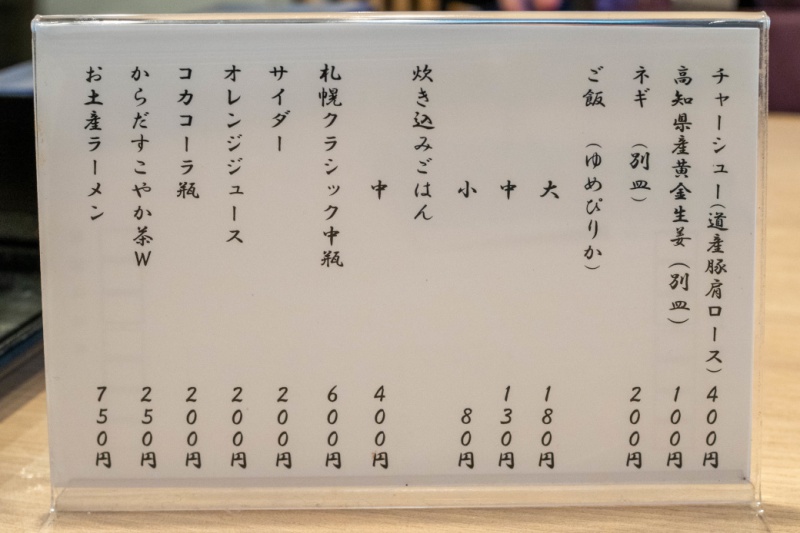 チャーシュー(道産豚肩ロース) 400円
高知県産黄金生姜(別皿) 100円
ネギ(別皿) 200円
ご飯(ゆめぴりか)
大 180円
中 130円
小 80円
炊き込みごはん
中 400円
札幌クラシック中瓶 600円
サイダー 200円
オレンジジュース 200円
コカコーラ瓶 200円
からだすこやか茶W 250円
お土産ラーメン 750円